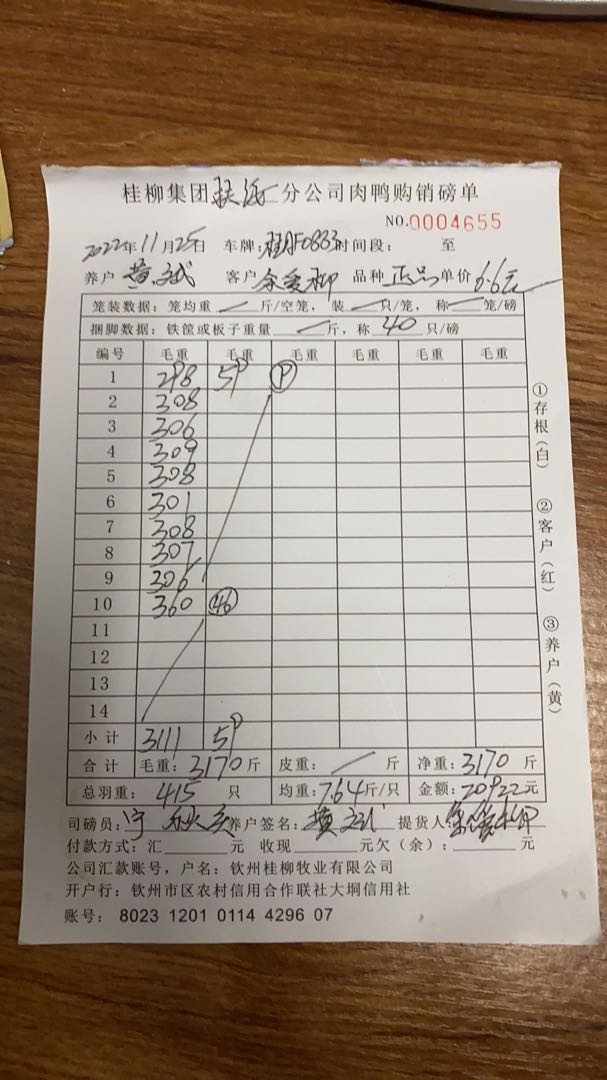 桂柳集团 分公司肉鸭购销磅单
NO.0004655
2022年11月25日 车牌: 时间段: 至
养户 黄文斌 客户 余爱柳 品种 正品 单价 6.6元
笼装数据: 笼均重 斤/空笼, 装 只/笼, 称 笼/磅
捆脚数据: 铁筐或板子重量 斤, 称 40 只/磅
编号 毛重 毛重 毛重 毛重 毛重 毛重
1 298 59 9
2 308
3 306
4 309
5 308
6 301
7 308
8 307
9 306
10 360 46
11
12
13
14
小计 3111 59
合计 毛重: 3170 斤 皮重: 斤 净重: 3170 斤
总羽重: 415 只 均重: 7.64 斤/只 金额: 20922 元
司磅员: 养户签名: 黄文斌 提货人: 余爱柳
付款方式: 汇 元 收现 元 欠(余): 元
公司汇款账号, 户名: 钦州桂柳牧业有限公司
开户行: 钦州市区农村信用合作联社大垌信用社
账号: 8023 1201 0114 4296 07
①存根(白) ②客户(红) ③养户(黄)